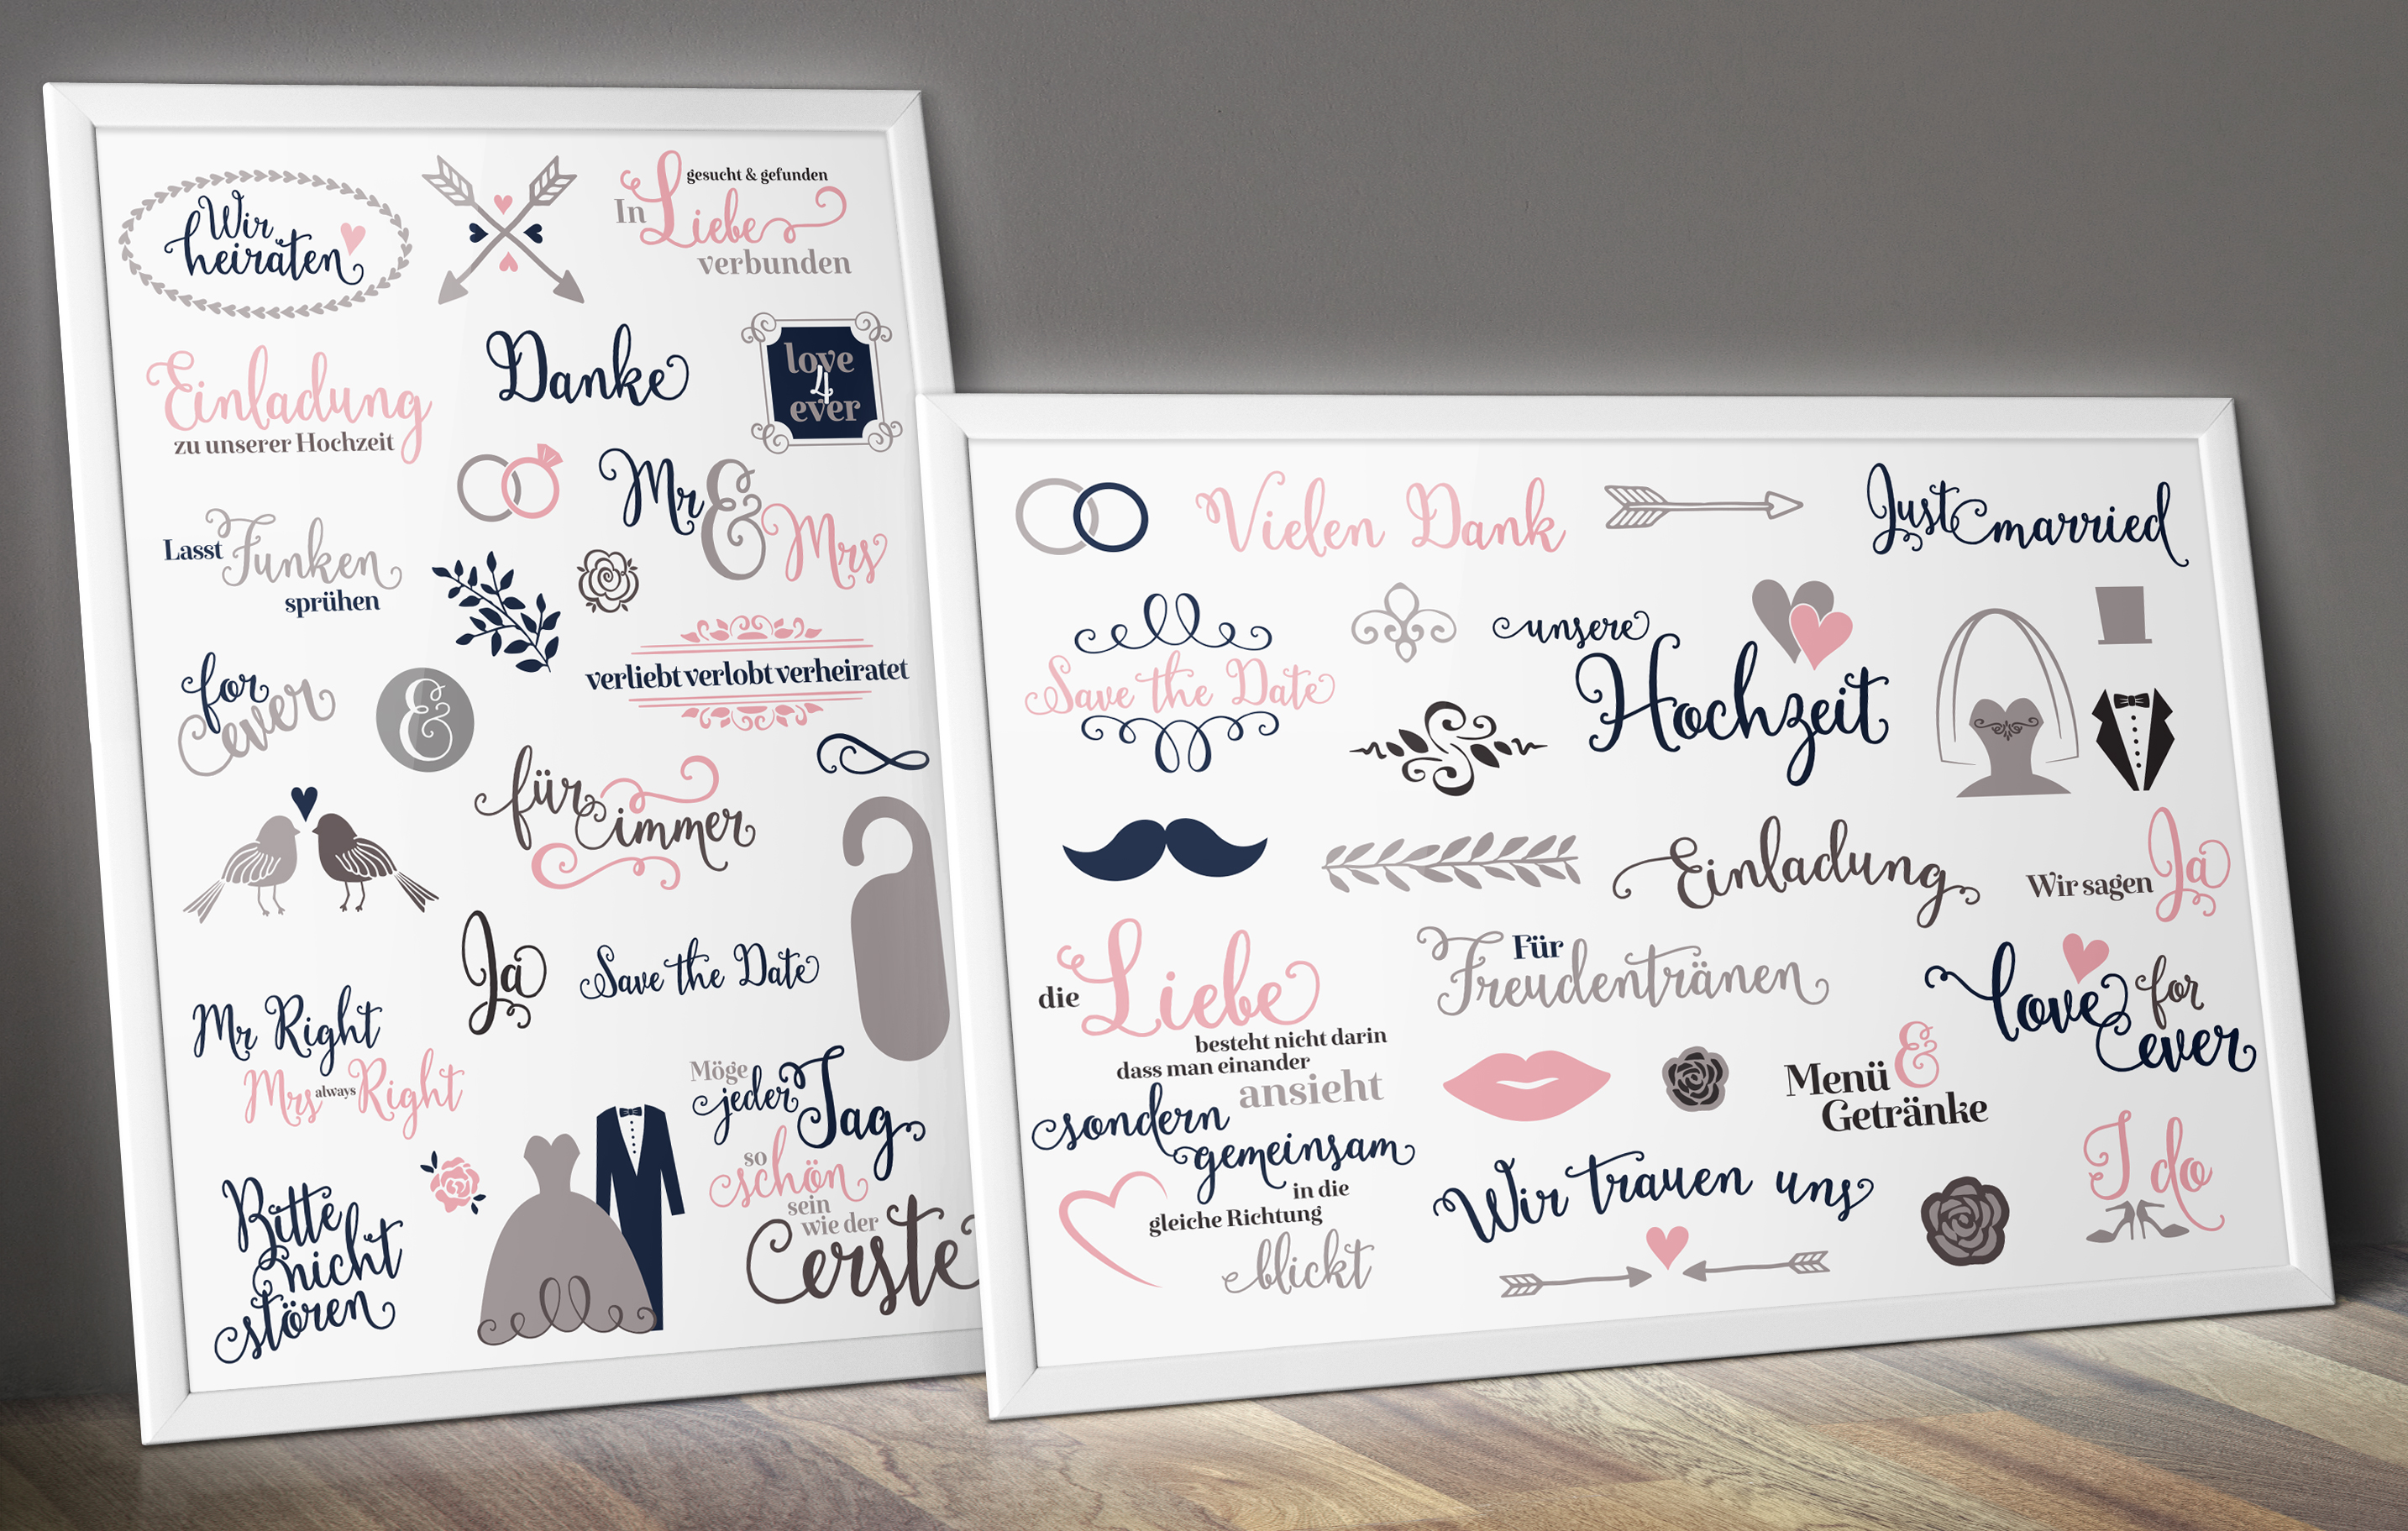 Wir
heiraten
gesucht & gefunden
In Liebe
verbunden
Einladung
zu unserer Hochzeit
Danke
love
4
ever
Mr & Mrs
Lasst Funken
sprühen
verliebt verlobt verheiratet
for
ever
&
für
immer
Ja
Save the Date
Mr Right
Mrs always Right
Möge
jeder Tag
so
schön
sein
wie der
erste
Bitte
nicht
stören
Vielen Dank
Just married
Save the Date
unsere
Hochzeit
Einladung
Wir sagen Ja
die Liebe
besteht nicht darin
dass man einander
ansieht
sondern
gemeinsam
in die
gleiche Richtung
blickt
Für
Freudentränen
love for
ever
Menü &
Getränke
Wir trauen uns
I do